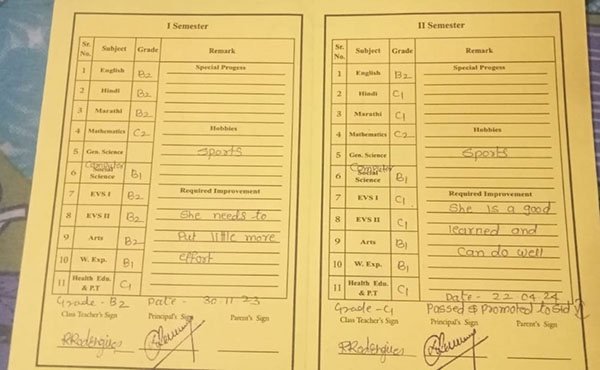 I Semester
Sr. No. Subject Grade Remark
1 English B2 Special Progess
2 Hindi B2
3 Marathi B2
4 Mathematics C2 Hobbies
5 Gen. Science Sports
Computer
6 Social Science B1
7 EVS I B2 Required Improvement
8 EVS II B2 She needs to
9 Arts B2 Put little more
10 W. Exp. B1 effort
11 Health Edu. & P.T C1
Grade - B2 Date - 30.11.23
Class Teacher's Sign Principal's Sign Parent's Sign
RRodrigues
II Semester
Sr. No. Subject Grade Remark
1 English B2 Special Progess
2 Hindi C1
3 Marathi C1
4 Mathematics C2 Hobbies
5 Gen. Science Sports
Computer
6 Social Science B1
7 EVS I C1 Required Improvement
8 EVS II C1 She is a good
9 Arts B1 learned and
10 W. Exp. B1 Can do well
11 Health Edu. & P.T C1
Date - 22.04.24
Grade - C1 Passed & Promoted to Std
Class Teacher's Sign Principal's Sign Parent's Sign
RRodrigues